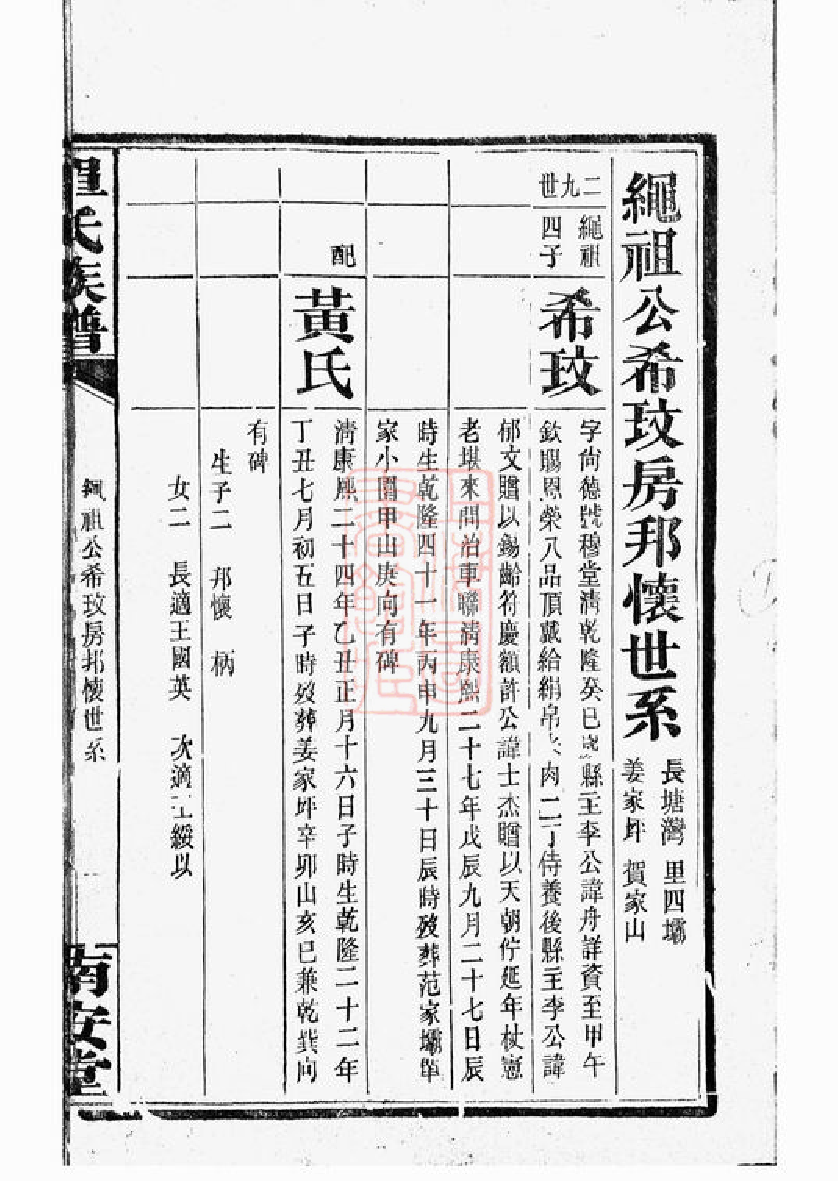 繩祖公希玟房邦懷世系
長塘灣 里四壩
姜家坪 賀家山
二九世
繩祖
四子
希玟
字尚德號穆堂清乾隆癸巳縣主李公諱舟詳資至甲午
欽賜恩榮八品頂戴給絹帛肉二丁侍養後縣主李公諱
郁文贈以錫齡符慶額許公諱士杰贈以天朝佇延年杖憲
老堪來問治車聯清康熙二十七年戊辰九月二十七日辰
時生乾隆四十一年丙申九月三十日辰時歿葬范家壩單
家小園甲山庚向有碑
配
黃氏
清康熙二十四年乙丑正月十六日子時生乾隆二十二年
丁丑七月初五日子時歿葬姜家坪辛卯山亥巳兼乾巽向
有碑
生子二 邦懷 柄
女二 長適王國英 次適王綏以
氏族譜
繩祖公希玟房邦懷世系
南安堂